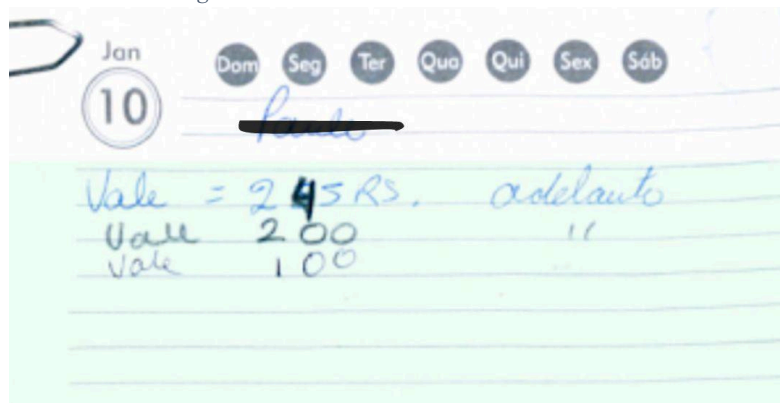 Jan
10
Dom Seg Ter Qua Qui Sex Sáb
Vale = 245 RS. adelanto
Vale 200 "
Vale 100